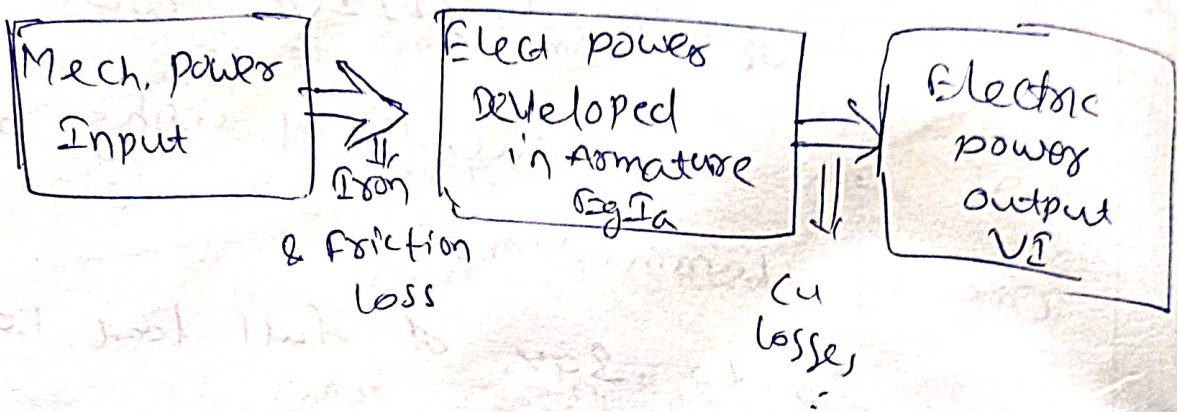 Mech. Power
Input
Iron
& Friction
Loss
Elect power
Developed
in Armature
EgIa
Cu
Losses
Electric
power
output
VI